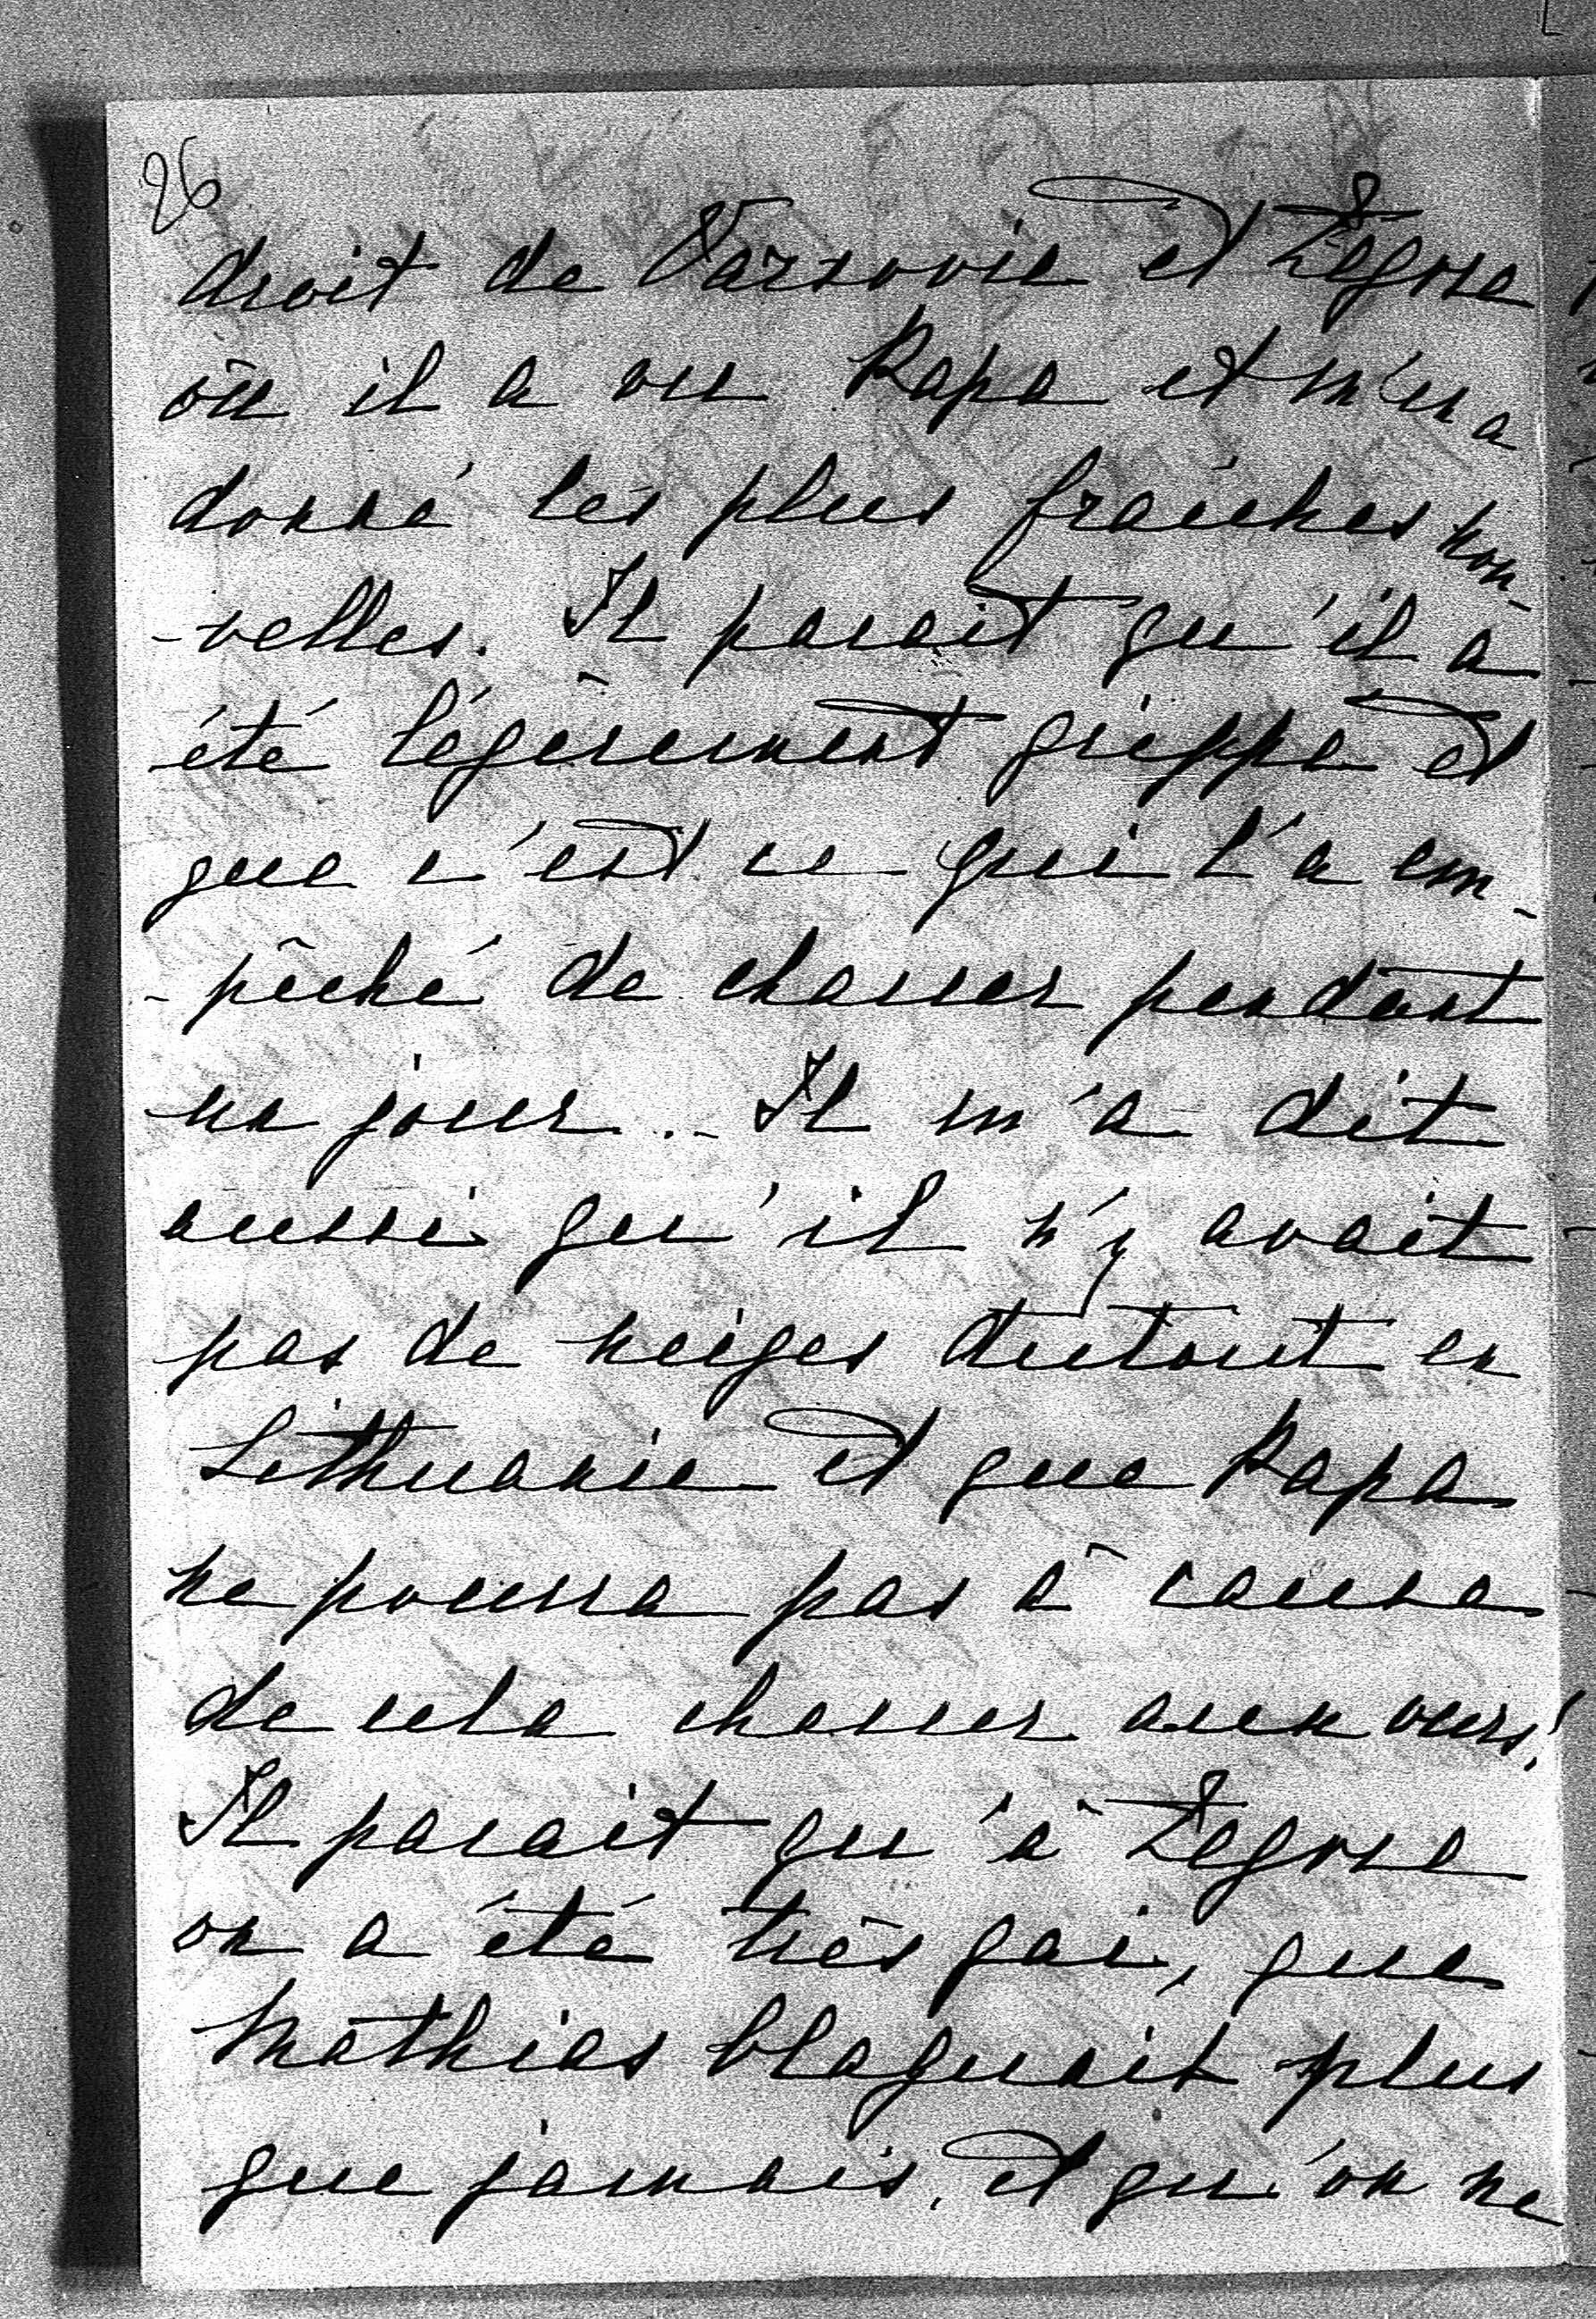 26
droit de Varsovie et Zegrze
où il a vu Papa et m'en a
donné les plus fraîches nou-
-velles. Il parait qu'il a
été légèrement grippé et
que c'est ce qui l'a em-
-pêché de chasser pendant
un jour. - Il m'a dit
aussi qu'il n'y avait
pas de neiges dutout en
Lithuanie et que Papa
ne pourra pas à cause
de cela chasser aux ours!
Il parait qu'à Zegrze
on a été très gai, que
Mathias blaguait plus
que jamais, et qu'on ne